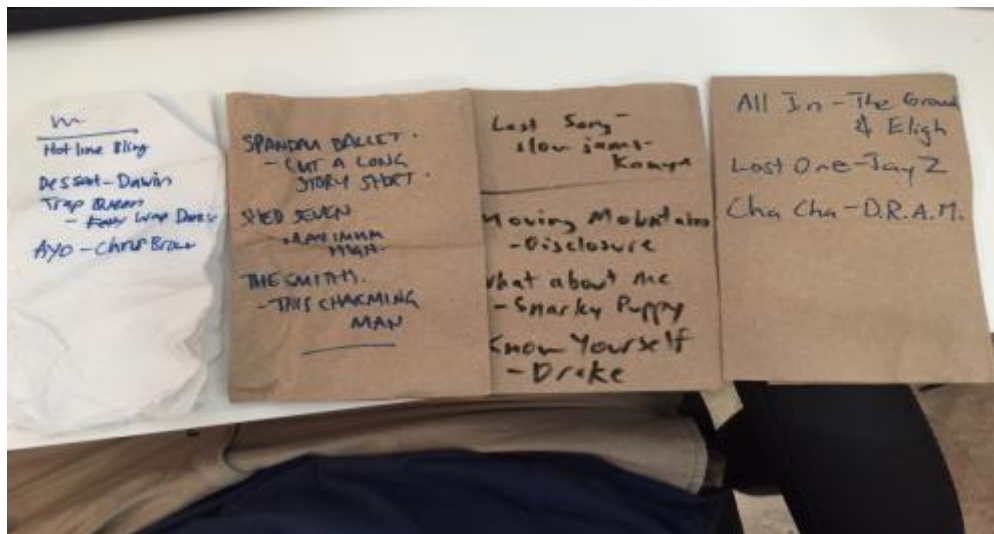 Hotline Bling
Dessert - Dawin
Trap Queen
- Wap Dance
Ayo - Chris Brown
SPANDAU BALLET.
- CUT A LONG
STORY SHORT.
SHED SEVEN
- MAXIMUM
HIGH.
THE SMITHS.
- THIS CHARMING
MAN
Last Song -
slow jams -
Kanye
Moving Mountains
- Disclosure
What about me
- Snarky Puppy
Know Yourself
- Drake
All In - The Grouch
& Eligh
Lost One - Jay Z
Cha Cha - D.R.A.M.